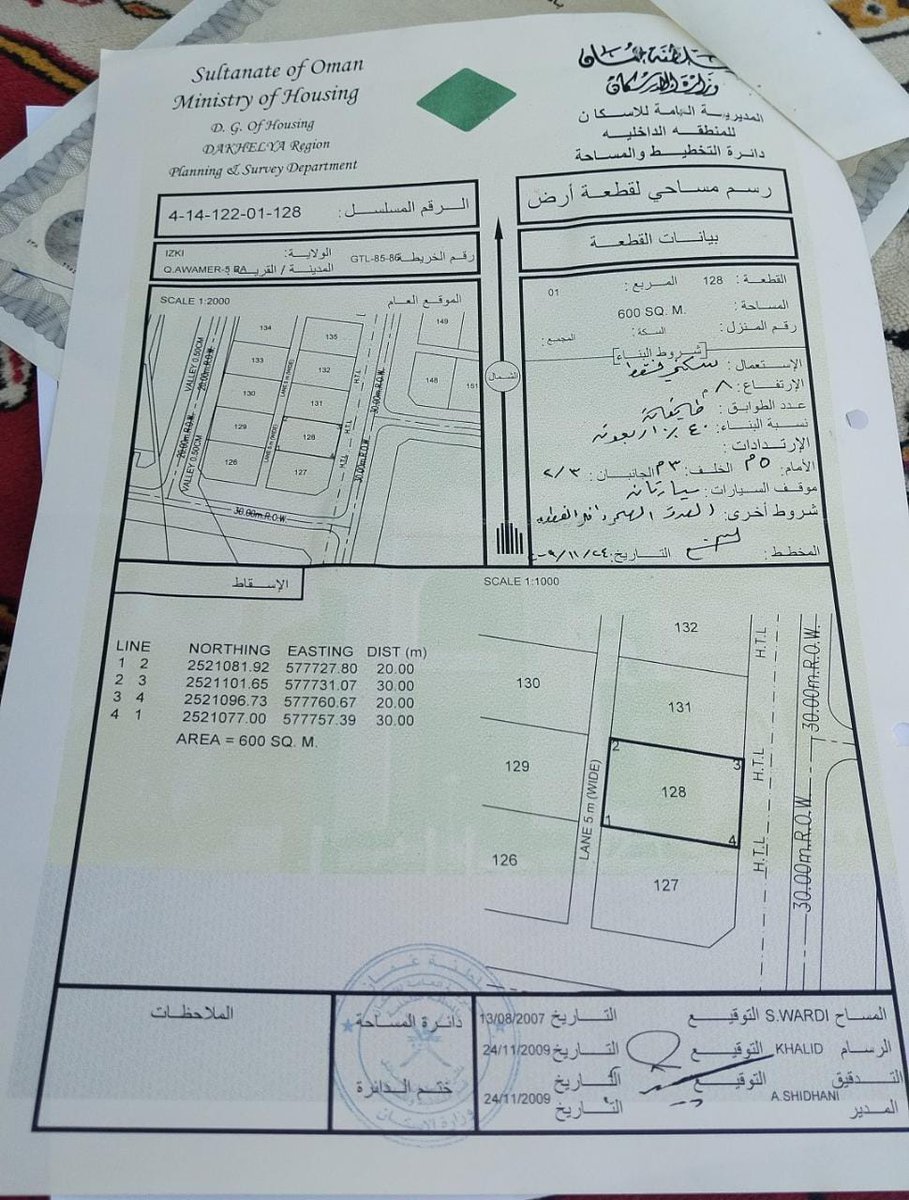 Sultanate of Oman
Ministry of Housing
D. G. Of Housing
DAKHELYA Region
Planning & Survey Department
سلطنة عمان
وزارة الإسكان
المديرية العامة للاسكان
للمنطقه الداخليه
دائرة التخطيط والمساحة
رسم مساحي لقطعة أرض
الرقم المسلسل : 4-14-122-01-128
بيانات القطعة
الولاية: IZKI
رقم الخريطة: GTL-85-86
المدينة / القرية: Q.AWAMER-5
القطعة : 128 المربع : 01
المساحة : 600 SQ. M.
رقم المنزل : السكة : المجمع :
[شروط البناء]
الإستعمال : سكني فقط
الإرتفاع : ٨م
عدد الطوابق : طابقان
نسبة البناء : ٤٠٪ اربعون
الإرتدادات :
الأمام: ٥م الخلف: ٣م الجانبان : ٢/٣
موقف السيارات : سيارتان
شروط أخرى :
المخطط : التاريخ:
SCALE 1:2000
الموقع العام
134
135
149
133
132
148
151
130
131
129
128
126
127
VALLEY 0.50CM
20.00m.R.O.W.
VALLEY 0.50CM
20.00m.R.O.W.
LANE 5 m (WIDE)
LANE 5 m (WIDE)
H.T.L
H.T.L
H.T.L
30.00m.R.O.W.
30.00m.R.O.W.
30.00m.R.O.W.
الشمال
الإسقاط
SCALE 1:1000
LINE NORTHING EASTING DIST (m)
1 2 2521081.92 577727.80 20.00
2 3 2521101.65 577731.07 30.00
3 4 2521096.73 577760.67 20.00
4 1 2521077.00 577757.39 30.00
AREA = 600 SQ. M.
132
130
131
129
128
126
127
2
3
1
4
LANE 5 m (WIDE)
H.T.L
H.T.L
H.T.L
30.00m.R.O.W.
30.00m.R.O.W.
الملاحظات
دائرة المساحة
ختم الدائرة
المساح S.WARDI التوقيع التاريخ 13/08/2007
الرسام KHALID التوقيع التاريخ 24/11/2009
التدقيق التوقيع التاريخ
المدير A.SHIDHANI التاريخ 24/11/2009